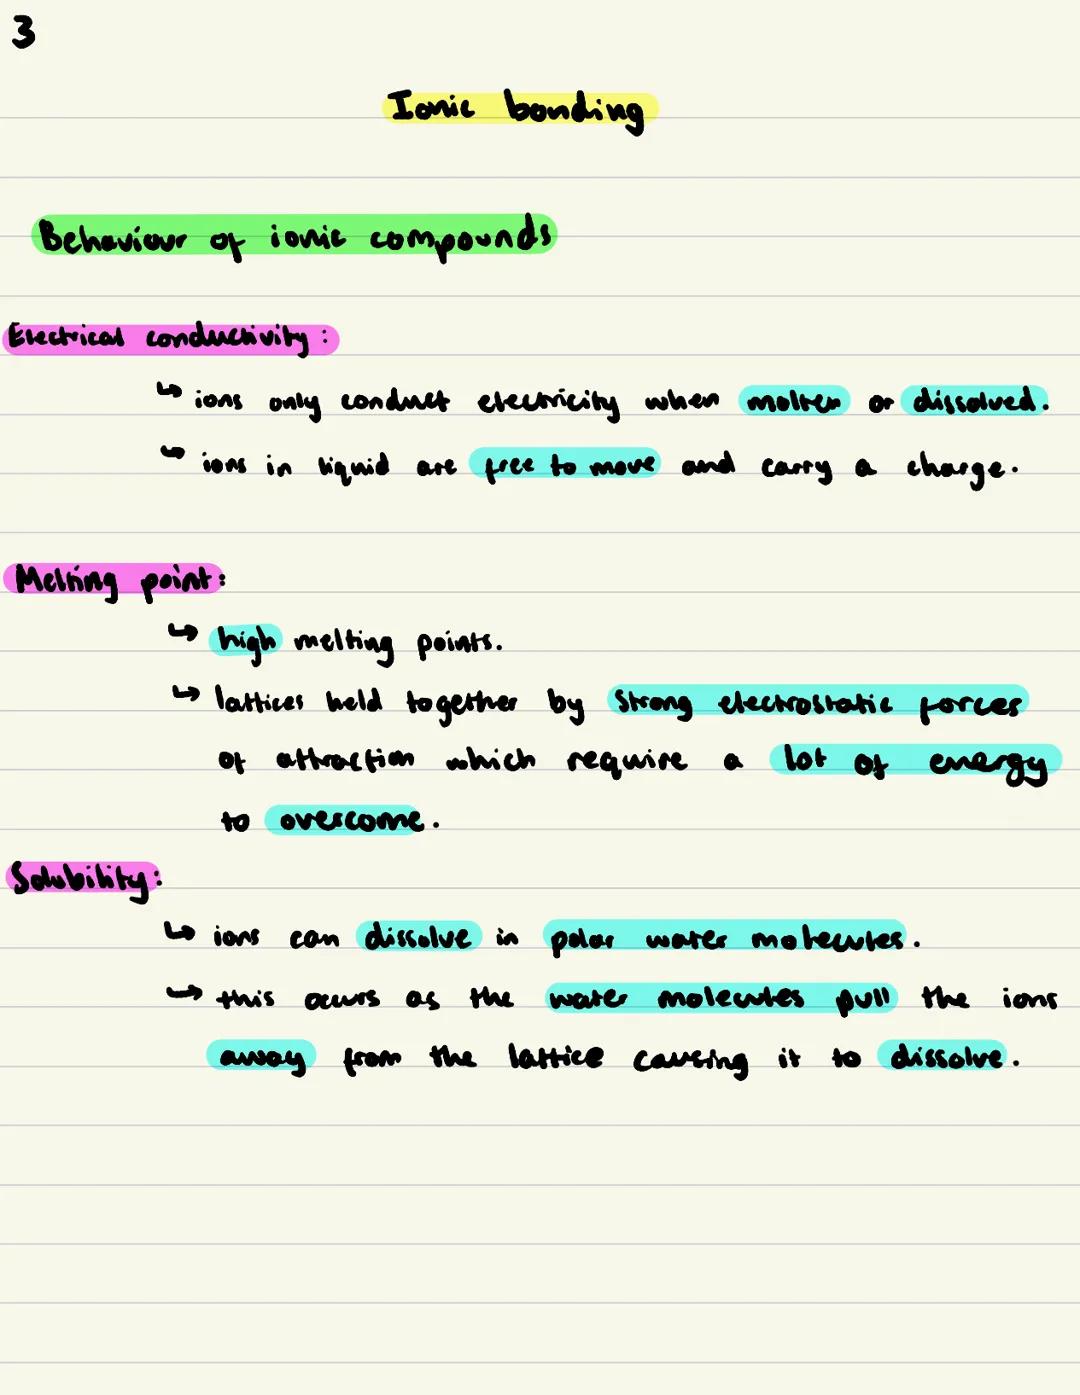 3
Ionic bonding
Behaviour of ionic compounds
Electrical conductivity:
↳ ions only conduct electricity when molten or dissolved.
↳ ions in liquid are free to move and carry a charge.
Melting point:
↳ high melting points.
↳ lattices held together by strong electrostatic forces
of attraction which require a lot of energy
to overcome.
Solubility:
↳ ions can dissolve in polar water molecules.
↳ this occurs as the water molecules pull the ions
away from the lattice causing it to dissolve.